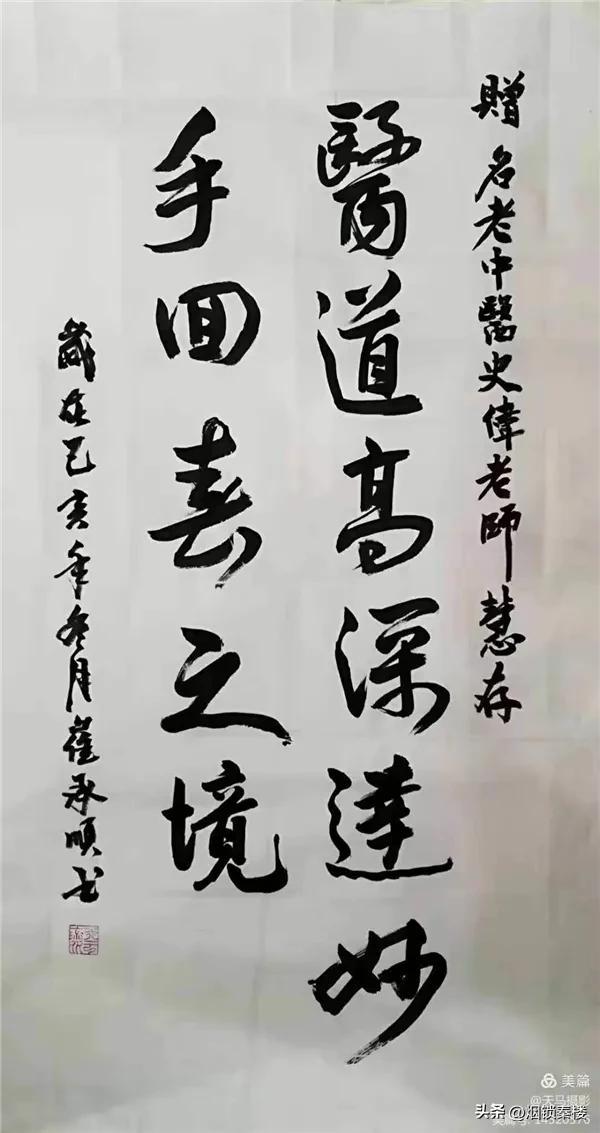 贈 名老中醫史偉老師慧存
醫道高深達妙
手回春之境
歲在己亥年冬月崔承順书
美篇
@天马摄影
美篇号: 14320376
头条 @烟锁秦楼